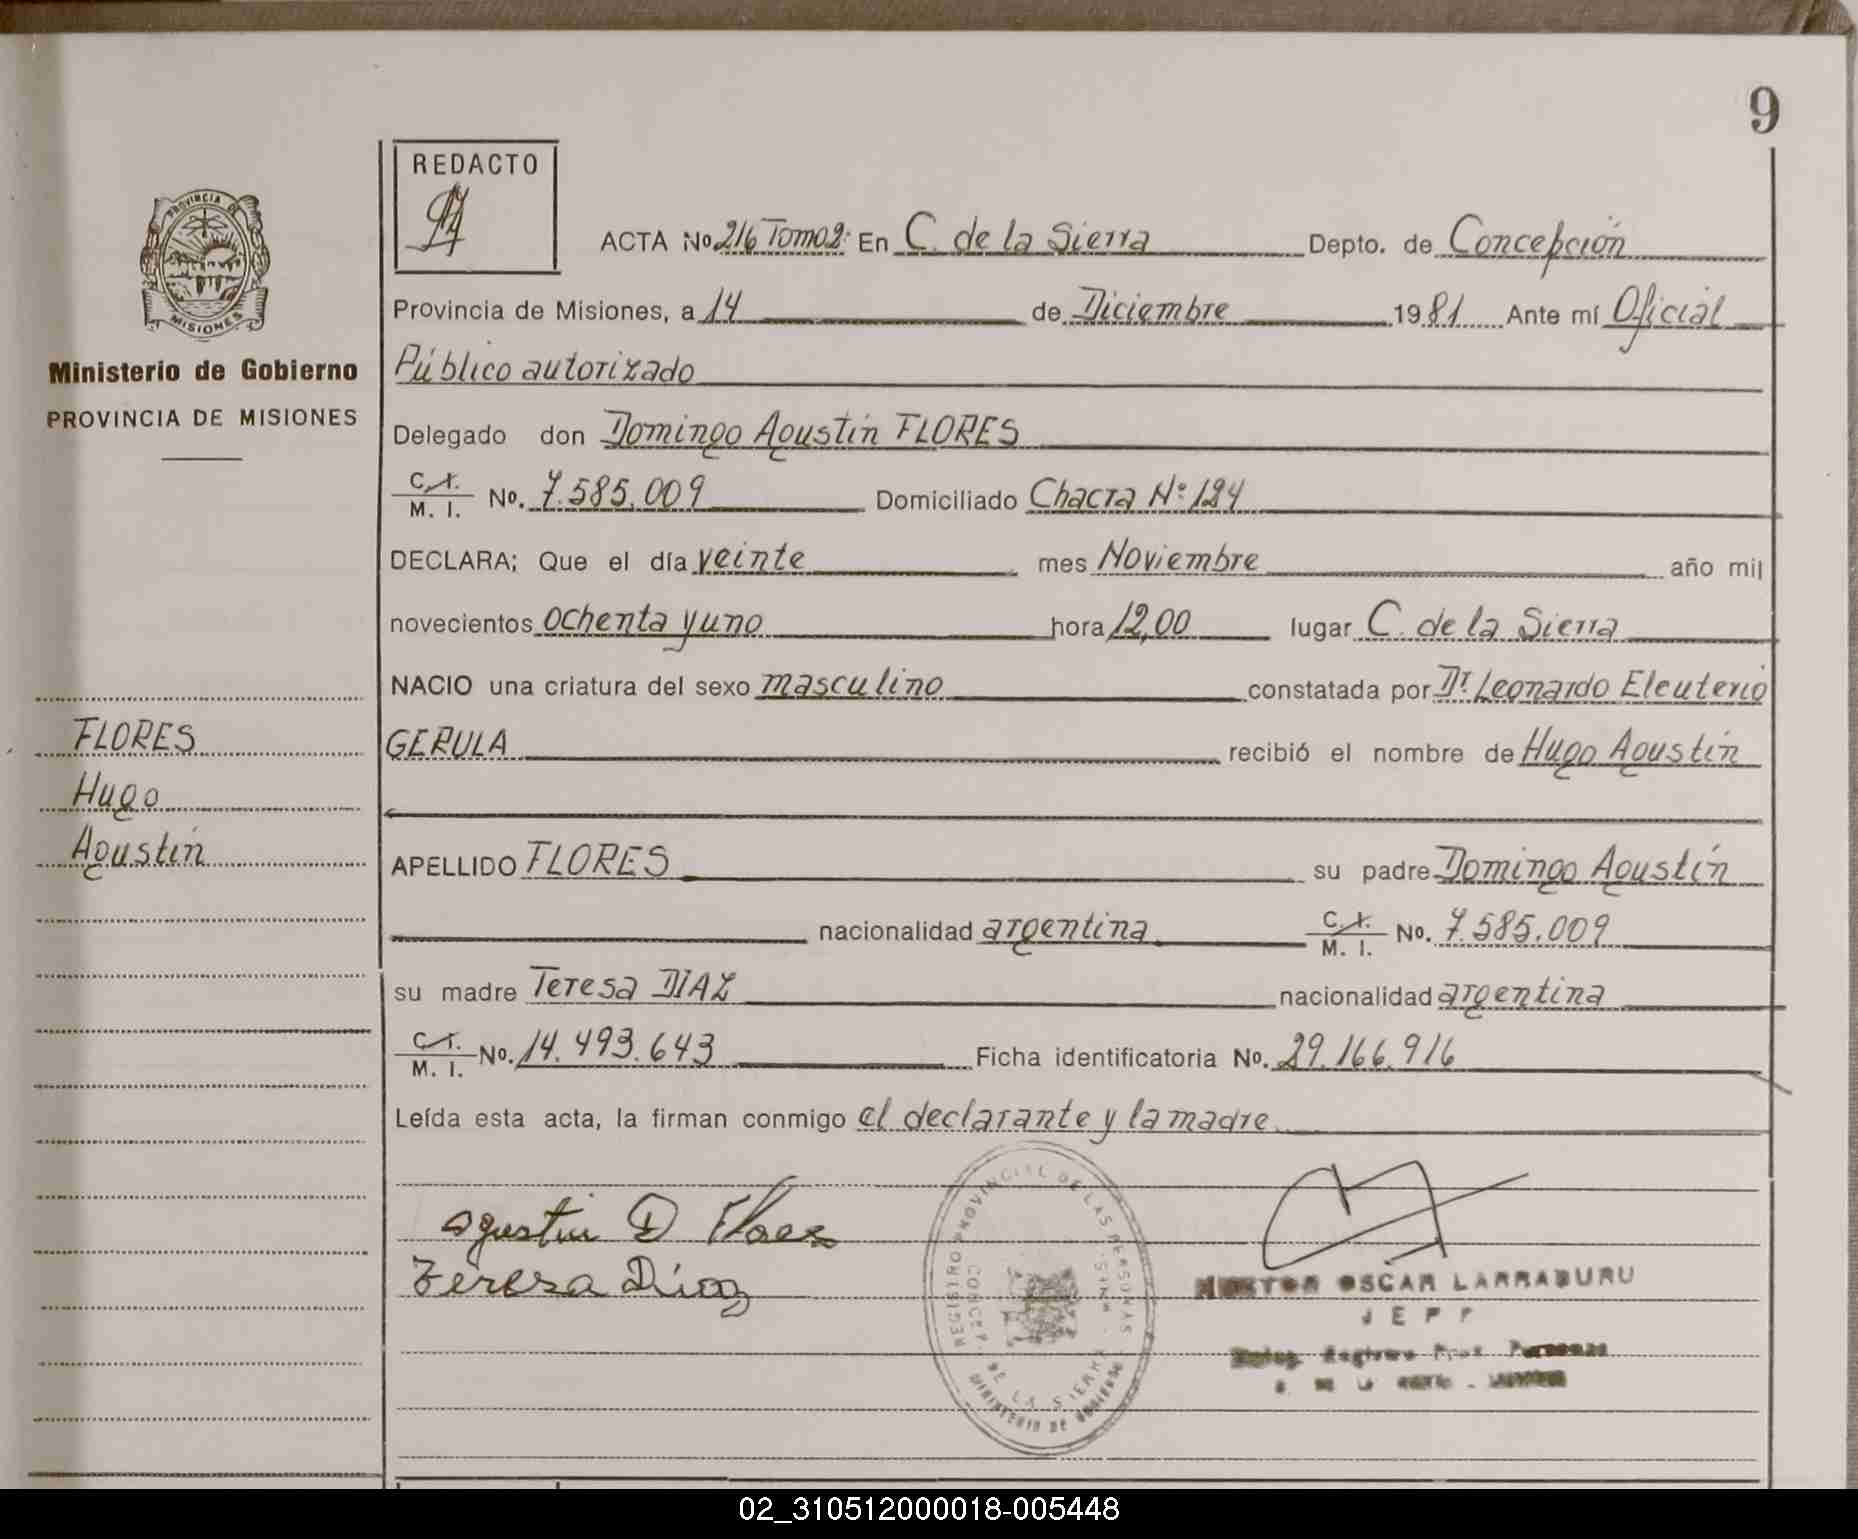 9
REDACTO
PROVINCIA DE
MISIONES
ACTA No. 216 Tomo 2: En C. de la Sierra Depto. de Concepción
Provincia de Misiones, a 14 de Diciembre 1981 Ante mí Oficial
Ministerio de Gobierno
PROVINCIA DE MISIONES
Público autorizado
Delegado don Domingo Agustín FLORES
C. I.
M. I. No. 7.585.009 Domiciliado Chacra Nº 124
DECLARA; Que el día veinte mes Noviembre año mil
novecientos ochenta y uno hora 12,00 lugar C. de la Sierra
NACIO una criatura del sexo masculino constatada por Dr. Leonardo Eleuterio
FLORES
Hugo
Agustín
GERULA recibió el nombre de Hugo Agustín
APELLIDO FLORES su padre Domingo Agustín
nacionalidad argentina C. I.
M. I. No. 7.585.009
su madre Teresa DIAZ nacionalidad argentina
C. I.
M. I. No. 14.493.643 Ficha identificatoria No. 29.166.916
Leída esta acta, la firman conmigo el declarante y la madre.
Agustin D Flores
Teresa Diaz
REGISTRO PROVINCIAL DE LAS PERSONAS
CONCEP. DE LA SIERRA
MINISTERIO DE GOBIERNO
OSCAR LARRABURU
JEFE
Registro Prov. Personas
02_310512000018-005448